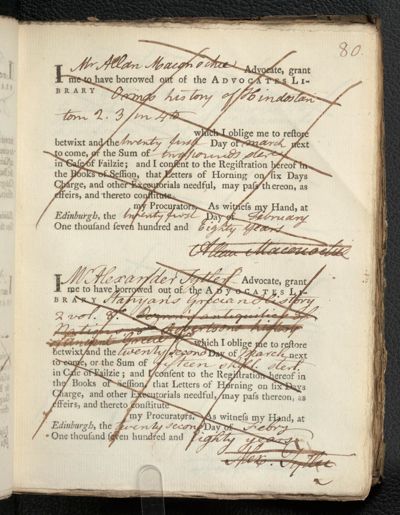 80.
I Mr Allan Maconochie Advocate, grant
me to have borrowed out of the ADVOCATES LI-
BRARY Orms history of Hindostan
tom 2. 3 in 4to
which I oblige me to restore
betwixt and the twenty first Day of march next
to come, or the Sum of two pounds sterl
in Case of Failzie; and I consent to the Registration hereof in
the Books of Session, that Letters of Horning on six Days
Charge, and other Executorials needful, may pass thereon, as
effeirs, and thereto constitute
my Procurators. As witness my Hand, at
Edinburgh, the twenty first Day of February
One thousand seven hundred and Eighty years
Allan Maconochie
I Mr Alexander Tytler Advocate, grant
me to have borrowed out of the ADVOCATES LI-
BRARY Stanyans Grecian History
2 vol. 8o
which I oblige me to restore
betwixt and the twenty second Day of March next
to come, or the Sum of fifteen shill sterl
in Case of Failzie; and I consent to the Registration hereof in
the Books of Session, that Letters of Horning on six Days
Charge, and other Executorials needful, may pass thereon, as
effeirs, and thereto constitute
my Procurators. As witness my Hand, at
Edinburgh, the twenty second Day of Febry
One thousand seven hundred and Eighty years
Alex. Tytler